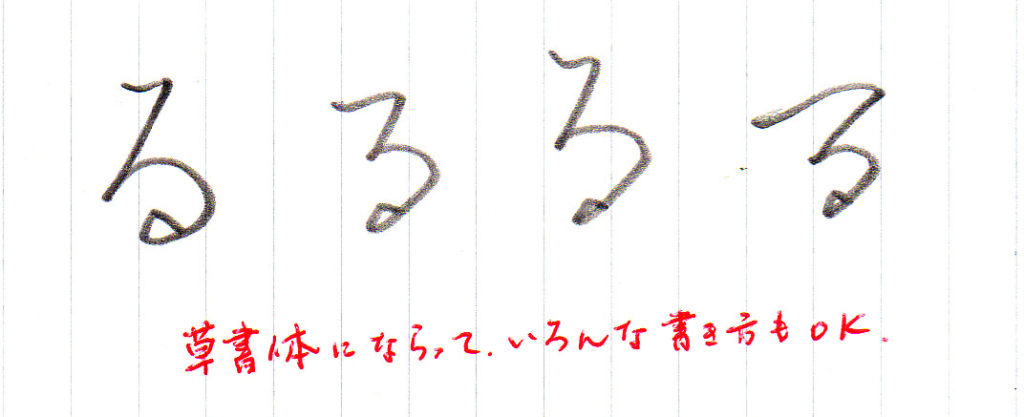 るるるる
草書体にならって、いろんな書き方もOK.